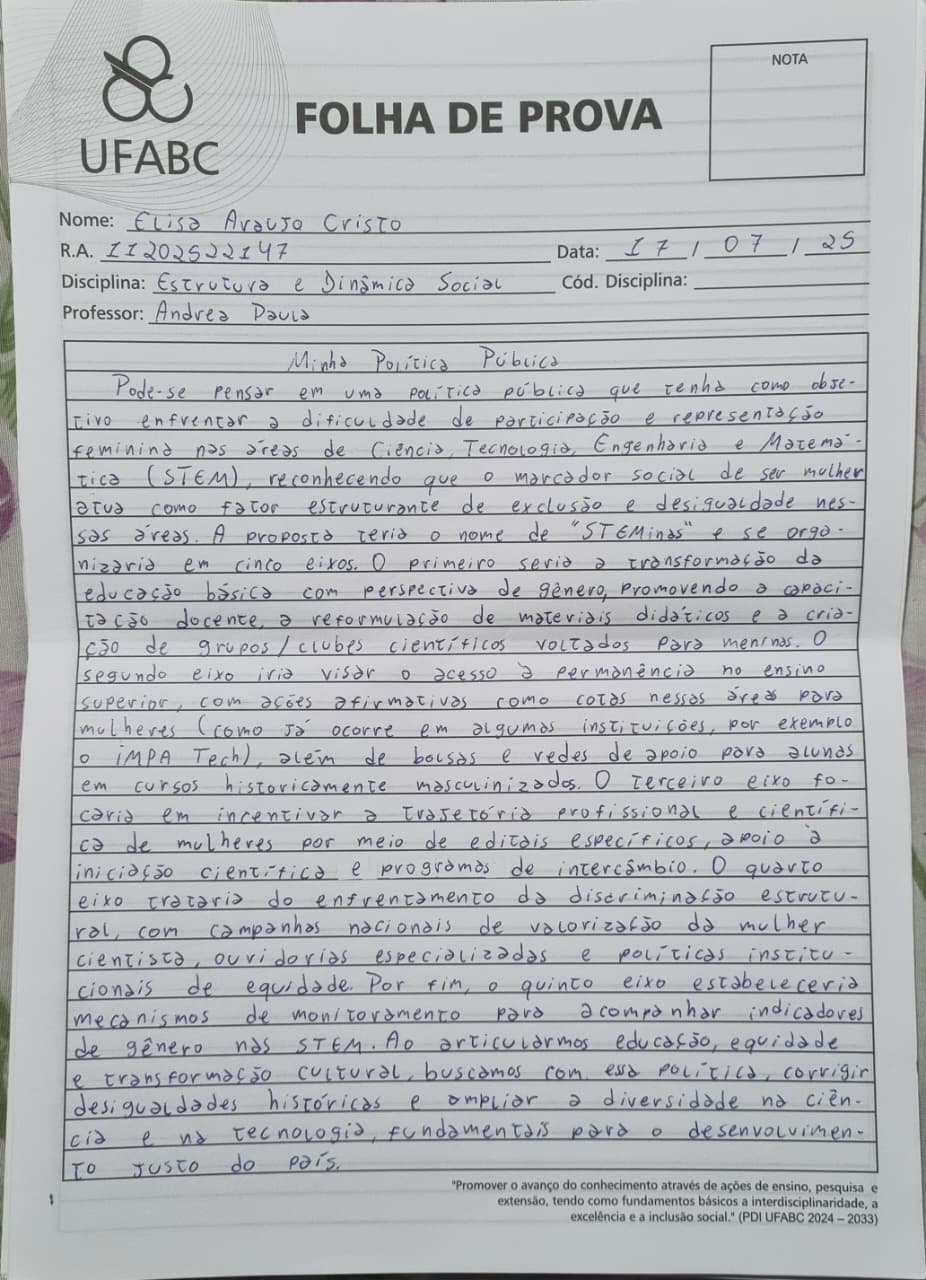 UFABC
FOLHA DE PROVA
NOTA
Nome: Elisa Araujo Cristo
R.A. 11202522147
Data: 17 / 07 / 25
Disciplina: Estrutura e Dinâmica Social
Cód. Disciplina:
Professor: Andrea Paula
Minha Política Pública
Pode-se pensar em uma política pública que tenha como obje-
tivo enfrentar a dificuldade de participação e representação
feminina nas áreas de Ciência, Tecnologia, Engenharia e Matemá-
tica (STEM), reconhecendo que o marcador social de ser mulher
atua como fator estruturante de exclusão e desigualdade nes-
sas áreas. A proposta teria o nome de "STEMinas" e se orga-
nizaria em cinco eixos. O primeiro seria a transformação da
educação básica com perspectiva de gênero, promovendo a capaci-
tação docente, a reformulação de materiais didáticos e a cria-
ção de grupos/clubes científicos voltados para meninas. O
segundo eixo iria visar o acesso à permanência no ensino
superior, com ações afirmativas como cotas nessas áreas para
mulheres (como já ocorre em algumas instituições, por exemplo
o IMPA Tech), além de bolsas e redes de apoio para alunas
em cursos historicamente masculinizados. O terceiro eixo fo-
caria em incentivar a trajetória profissional e científi-
ca de mulheres por meio de editais específicos, apoio à
iniciação científica e programas de intercâmbio. O quarto
eixo trataria do enfrentamento da discriminação estrutu-
ral, com campanhas nacionais de valorização da mulher
cientista, ouvidorias especializadas e políticas institu-
cionais de equidade. Por fim, o quinto eixo estabeleceria
mecanismos de monitoramento para acompanhar indicadores
de gênero nas STEM. Ao articularmos educação, equidade
e transformação cultural, buscamos com essa política, corrigir
desigualdades históricas e ampliar a diversidade na ciên-
cia e na tecnologia, fundamentais para o desenvolvimen-
to justo do país.
"Promover o avanço do conhecimento através de ações de ensino, pesquisa e
extensão, tendo como fundamentos básicos a interdisciplinaridade, a
excelência e a inclusão social." (PDI UFABC 2024 – 2033)